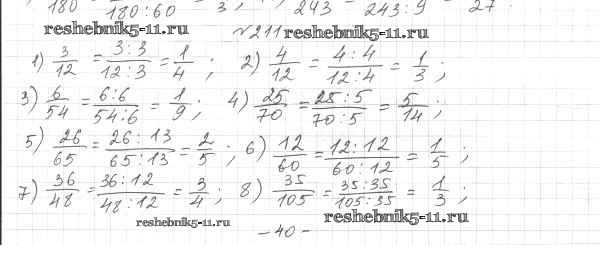 180 180:60 3, 243 243:9 27.
reshebnik5-11.ru №211 reshebnik5-11.ru
1) 3/12 = 3:3/12:3 = 1/4 ; 2) 4/12 = 4:4/12:4 = 1/3 ;
3) 6/54 = 6:6/54:6 = 1/9 ; 4) 25/70 = 25:5/70:5 = 5/14 ;
5) 26/65 = 26:13/65:13 = 2/5 ; 6) 12/60 = 12:12/60:12 = 1/5 ;
7) 36/48 = 36:12/48:12 = 3/4 ; 8) 35/105 = 35:35/105:35 = 1/3 ;
reshebnik5-11.ru reshebnik5-11.ru
-40-